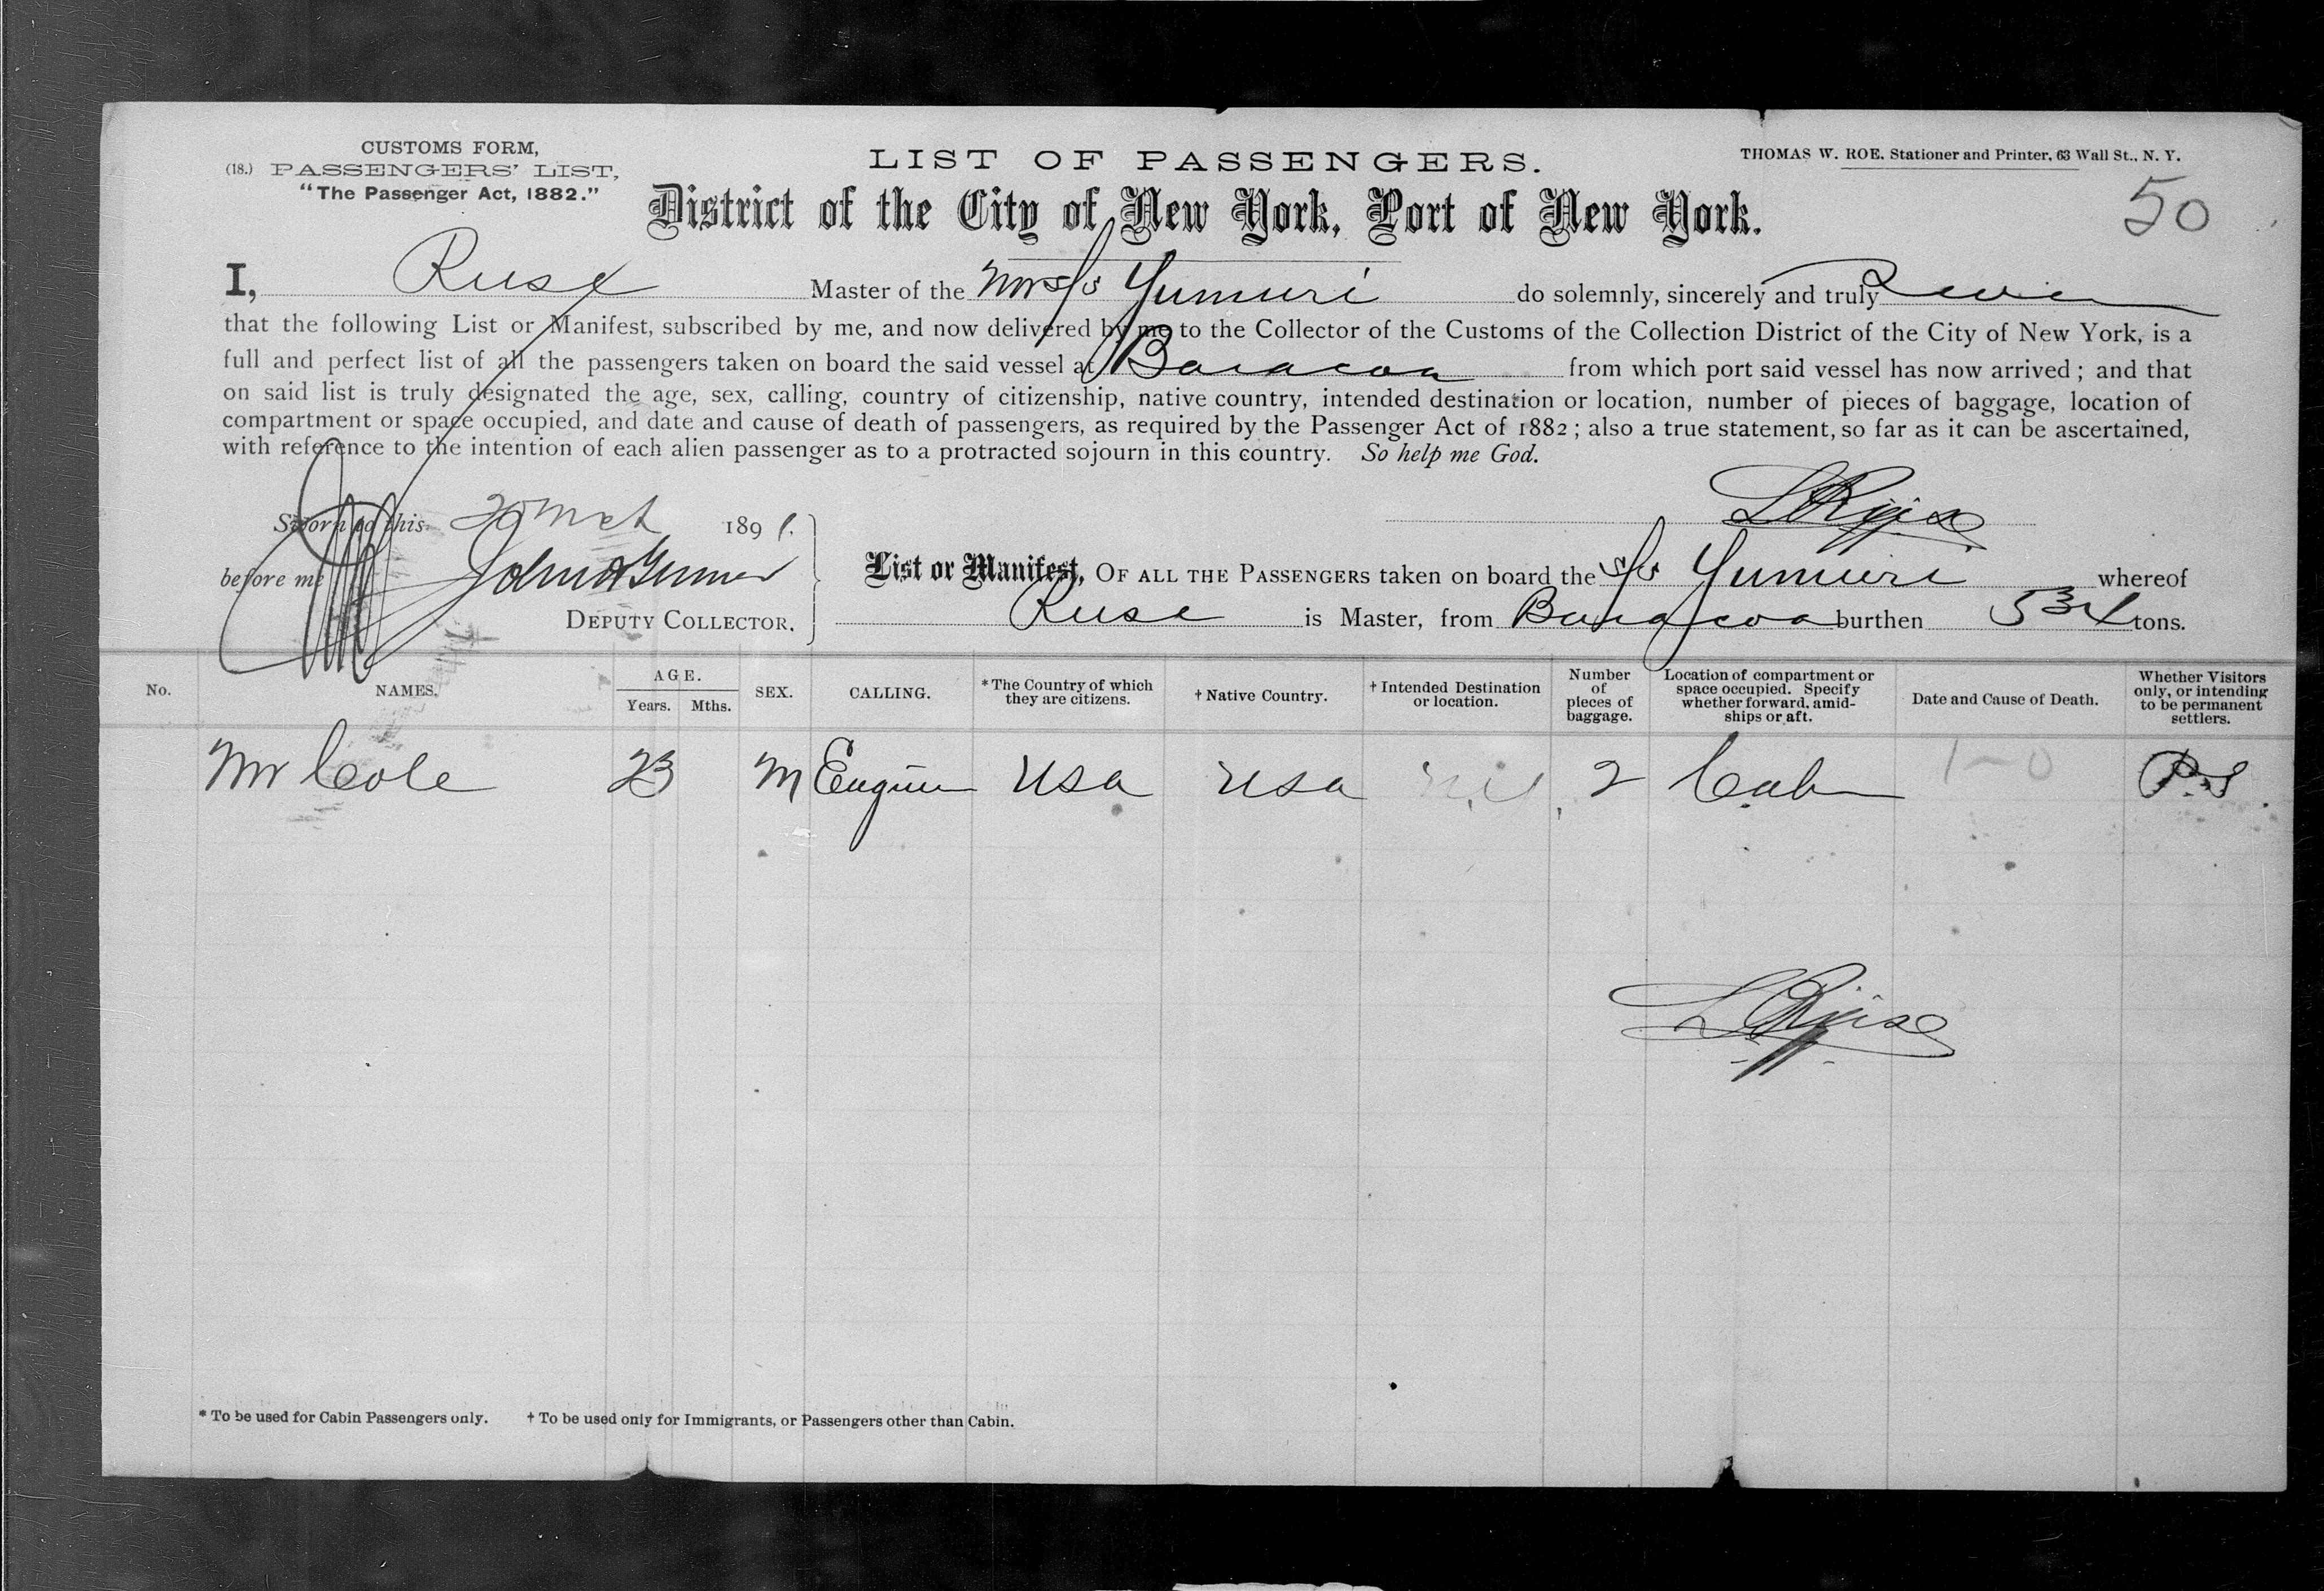 CUSTOMS FORM,
(18.) PASSENGERS' LIST,
"The Passenger Act, 1882."
LIST OF PASSENGERS.
THOMAS W. ROE. Stationer and Printer, 63 Wall St., N. Y.
District of the City of New York, Port of New York.
50
I, Ruse Master of the Yumuri do solemnly, sincerely and truly
that the following List or Manifest, subscribed by me, and now delivered by me to the Collector of the Customs of the Collection District of the City of New York, is a
full and perfect list of all the passengers taken on board the said vessel at Baracoa from which port said vessel has now arrived; and that
on said list is truly designated the age, sex, calling, country of citizenship, native country, intended destination or location, number of pieces of baggage, location of
compartment or space occupied, and date and cause of death of passengers, as required by the Passenger Act of 1882; also a true statement, so far as it can be ascertained,
with reference to the intention of each alien passenger as to a protracted sojourn in this country. So help me God.
Sworn to this 20 Mch 1891.
before me
DEPUTY COLLECTOR.
List or Manifest, OF ALL THE PASSENGERS taken on board the S/S Yumuri whereof
Ruse is Master, from Baracoa burthen tons.
No. NAMES. AGE. Years. Mths. SEX. CALLING. *The Country of which they are citizens. † Native Country. † Intended Destination or location. Number of pieces of baggage. Location of compartment or space occupied. Specify whether forward, amidships or aft. Date and Cause of Death. Whether Visitors only, or intending to be permanent settlers.
Mr Cole 23 M Engineer USA USA 2 Cabin
* To be used for Cabin Passengers only. † To be used only for Immigrants, or Passengers other than Cabin.